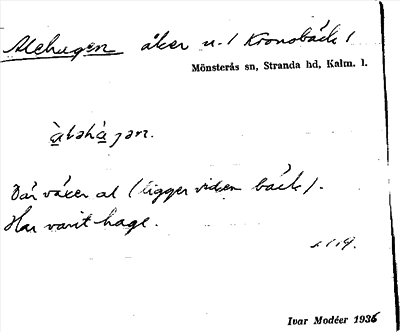 Alehagen åker n. 1 Kronobäck 1
Mönsterås sn, Stranda hd, Kalm. l.
àləhàgən.
Där växer al (ligger vidsen bäck).
Har varit hage.
Ivar Modéer 1936